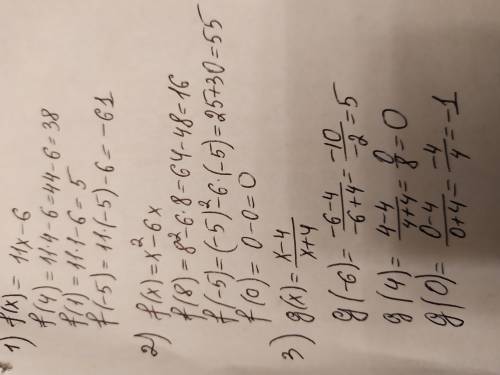 1) f(x) = 11x-6
f(4) = 11·4-6=44-6=38
f(1) = 11·1-6=5
f(-5) = 11·(-5)-6=-61
2) f(x)=x²-6x
f(8)=8²-6·8=64-48=16
f(-5)=(-5)²-6·(-5)=25+30=55
f(0)= 0-0=0
3) g(x)= x-4/x+4
g(-6)= -6-4/-6+4 = -10/-2 =5
g(4)= 4-4/4+4 = 0/8 =0
g(0)= 0-4/0+4 = -4/4 =-1